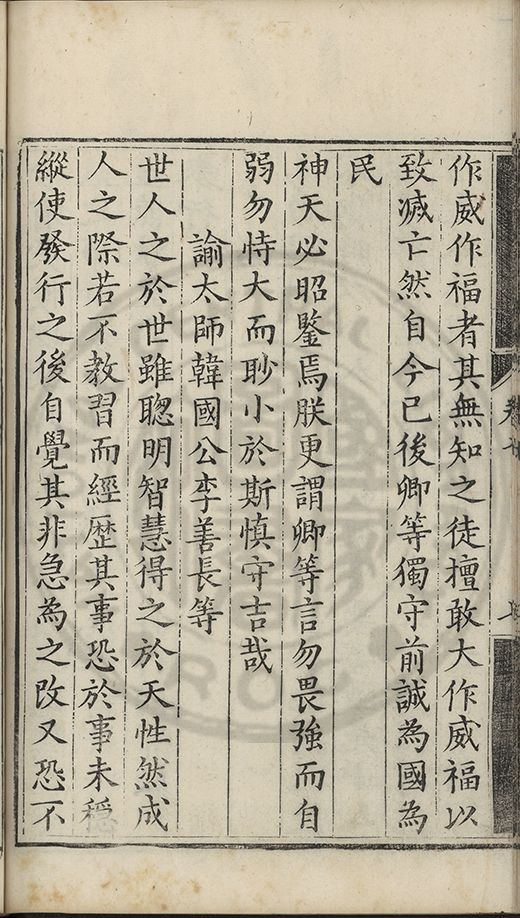 作威作福者其無知之徒擅敢大作威福以
致滅亡然自今已後卿等獨守前誠為國為
民
神天必昭鑒焉朕更謂卿等言勿畏強而自
弱勿恃大而眇小於斯慎守吉哉
諭太師韓國公李善長等
世人之於世雖聰明智慧得之於天性然成
人之際若不教習而經歷其事恐於事未穩
縱使發行之後自覺其非急為之改又恐不